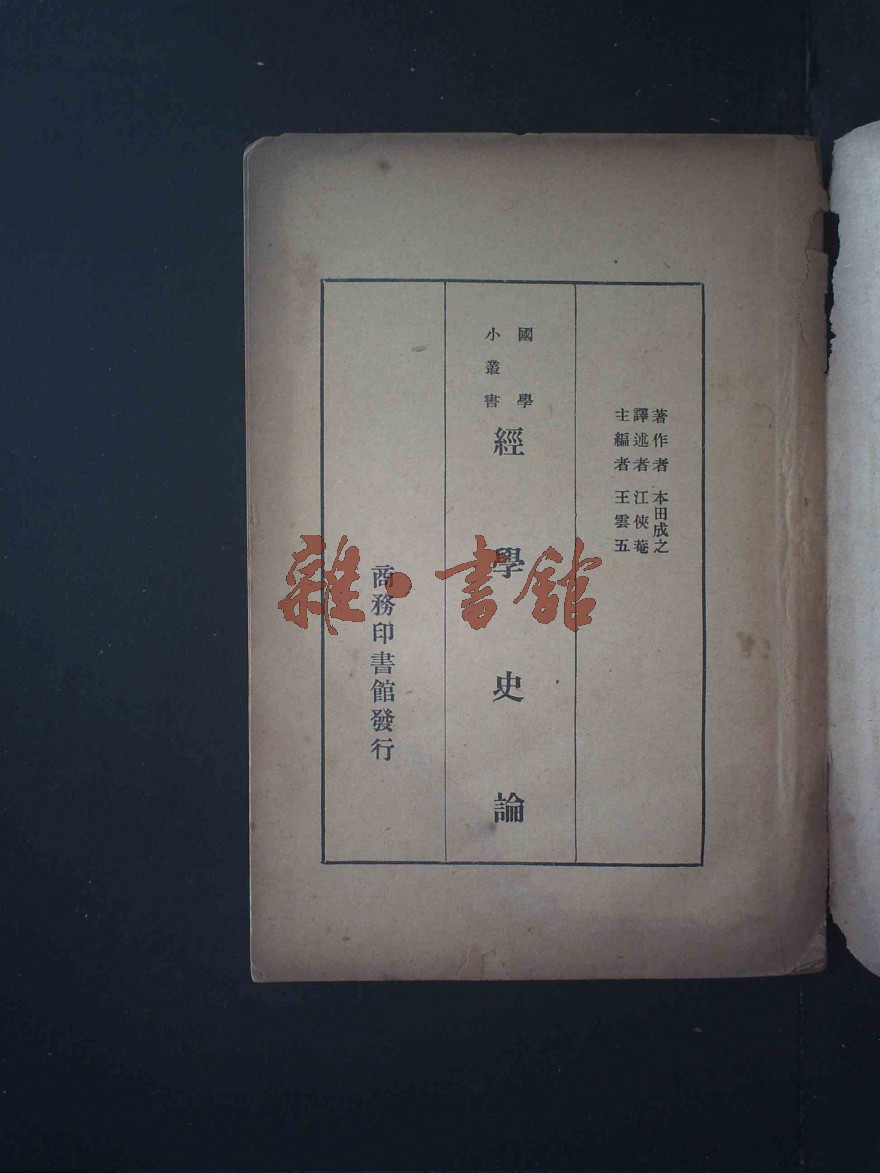 著作者 本田成之
譯述者 江俠菴
主編者 王雲五
國學
小叢書
經學史論
商務印書館發行
雜·書館